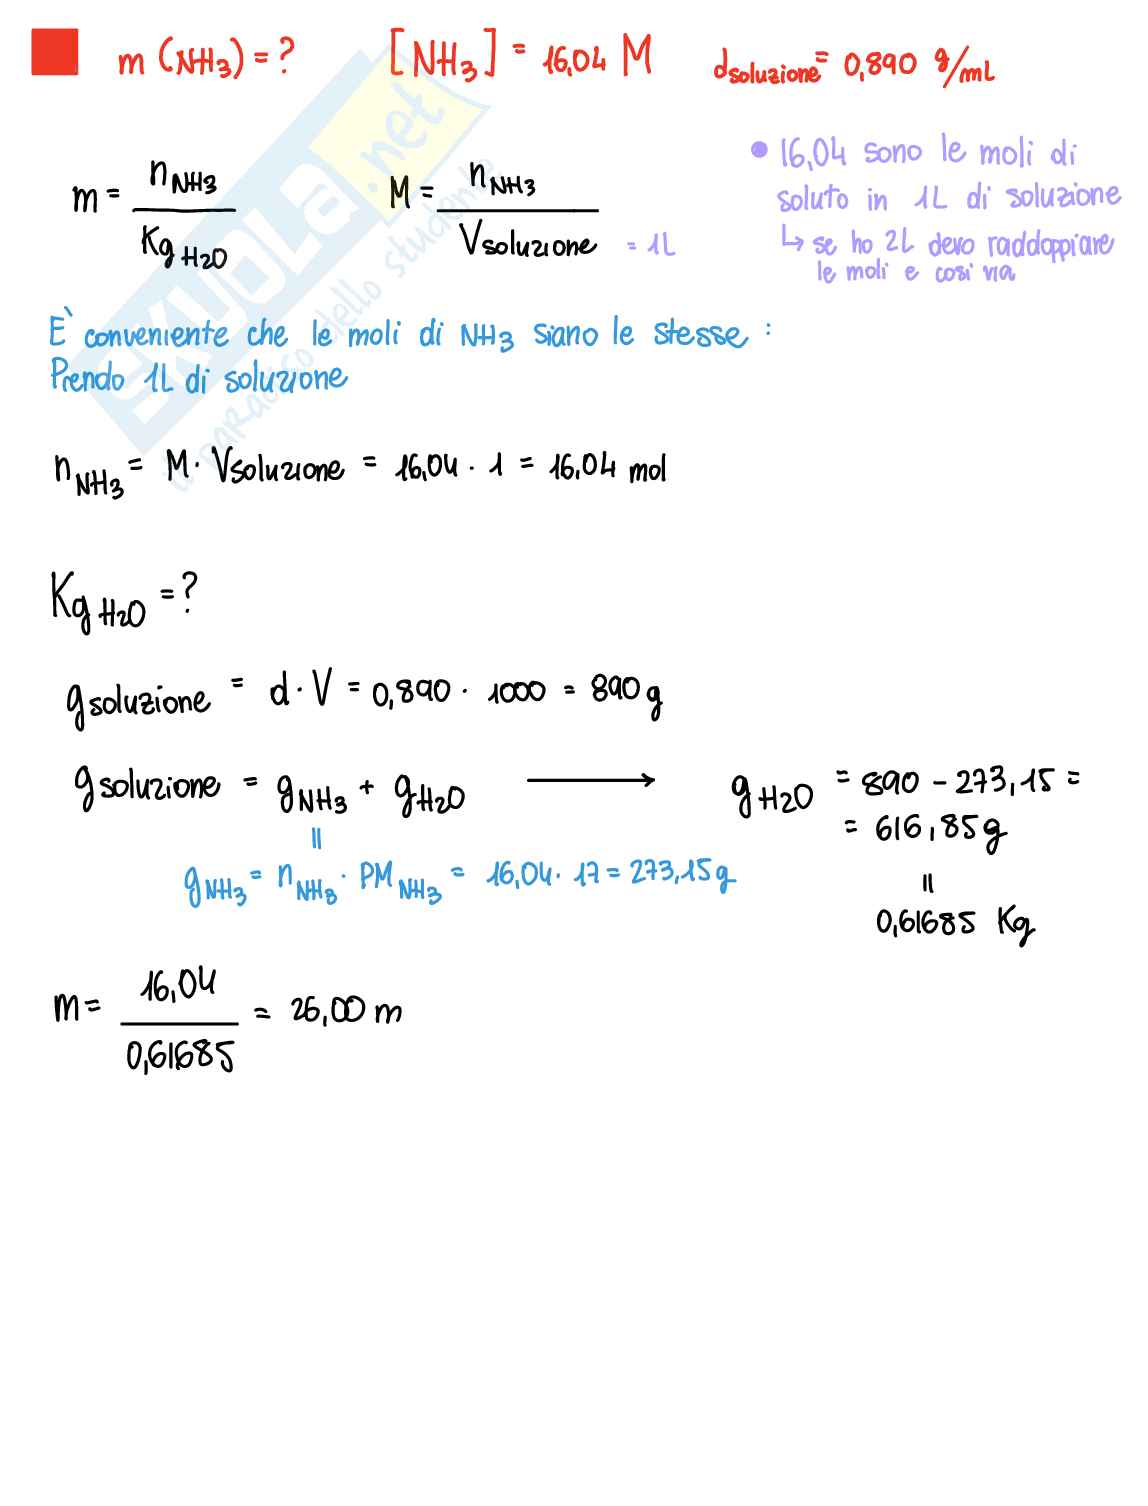 m (NH3) = ? [NH3] = 16,04 M dsoluzione = 0,890 g/mL
m = nNH3 / KgH2O M = nNH3 / Vsoluzione = 1L
• 16,04 sono le moli di
soluto in 1L di soluzione
↳ se ho 2L devo raddoppiare
le moli e così via
E' conveniente che le moli di NH3 siano le stesse :
Prendo 1L di soluzione
nNH3 = M · Vsoluzione = 16,04 · 1 = 16,04 mol
KgH2O = ?
gsoluzione = d · V = 0,890 · 1000 = 890 g
gsoluzione = gNH3 + gH2O → gH2O = 890 - 273,15 =
= 616,85 g
=
gNH3 = nNH3 · PMNH3 = 16,04 · 17 = 273,15 g
=
0,61685 Kg
m = 16,04 / 0,61685 = 26,00 m
SKUOLA.net
il paradiso dello studente